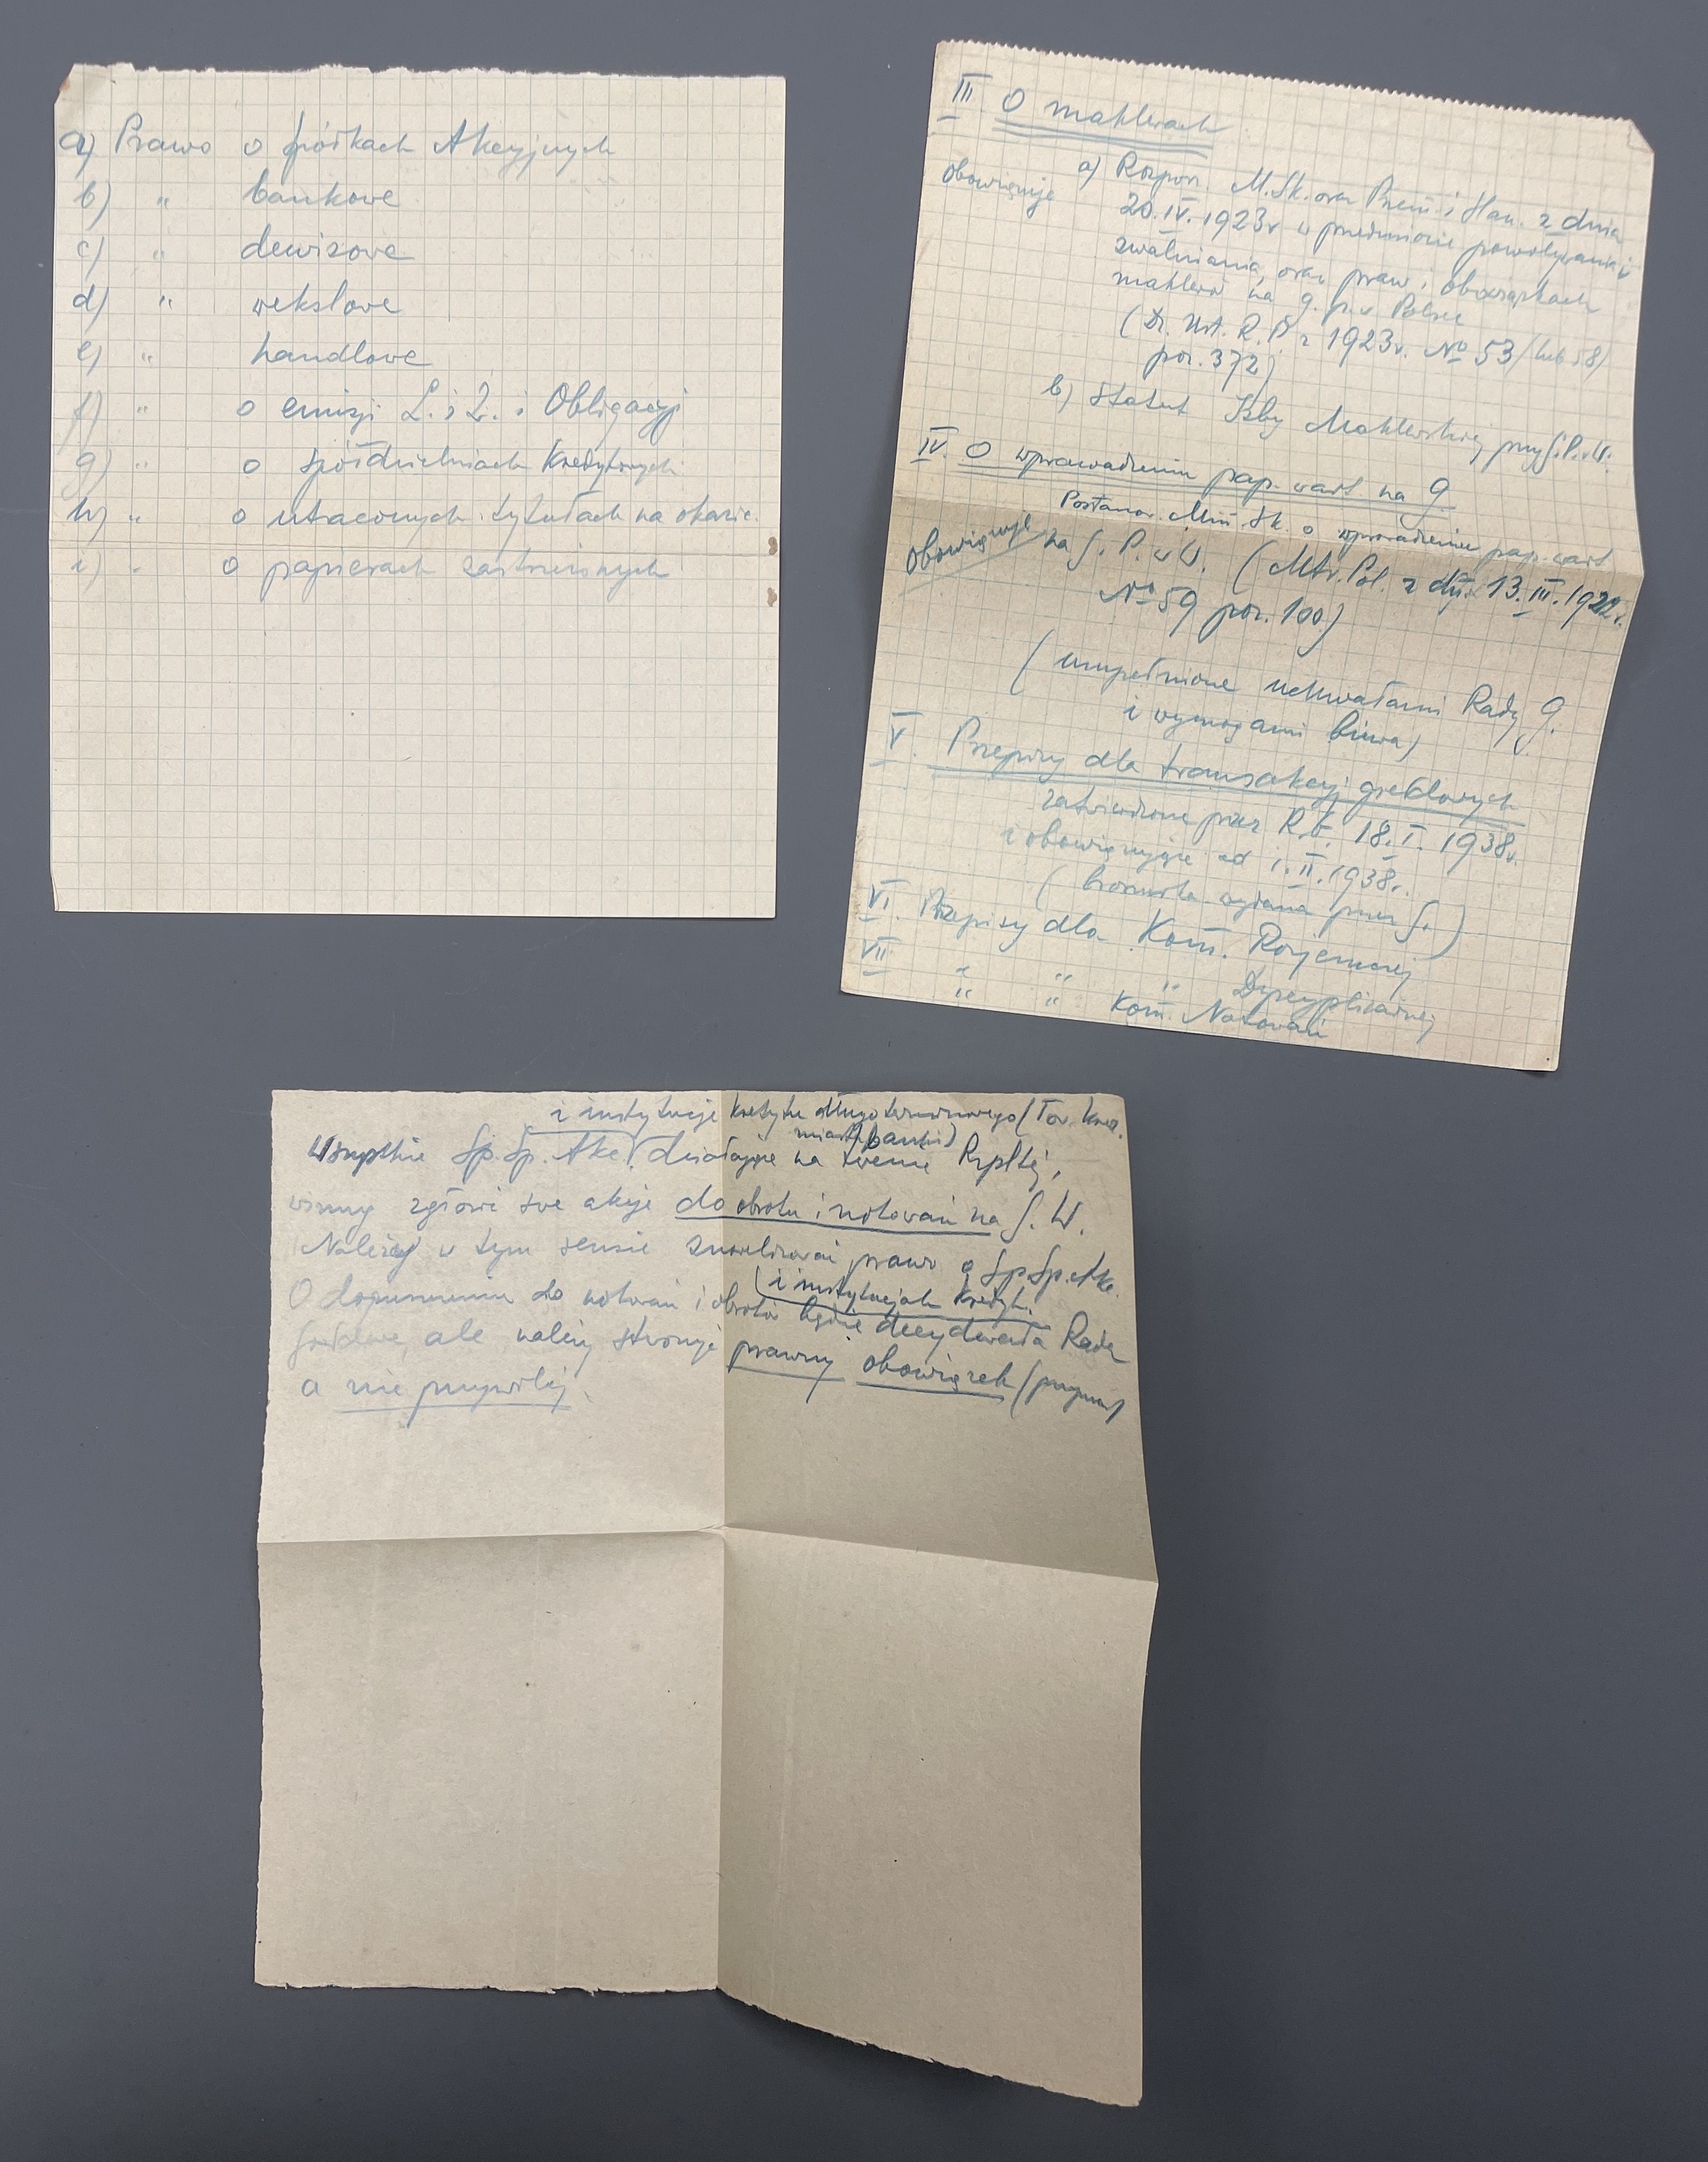 a) Prawo o spółkach Akcyjnych
b) " bankowe
c) " dewizowe
d) " wekslowe
e) " handlowe
f) " o emisji L. i Z. i Obligacji
g) " o spółdzielniach Kredytowych
h) " o utraconych tytułach na okazic.
i) " o papierach zastrzeżonych
III O maklerach
obowiązuje a) Rozpor. M. Sk. oraz Przem. i Han. z dnia
20.IV.1923r w przedmiocie powoływania i
zwalniania, oraz praw i obowiązkach
maklerów na g. p. w Polsce
(Dz. Ust. R.P. z 1923r. No 53 /lub 58/
poz. 372)
b) Statut Izby Maklerskiej przy G.P.W.
IV. O wprowadzeniu pap. wart na G
Postanow. Min. Sk. o wprowadzeniu pap. wart
obowiązuje na G. P. w W. (Mtr. Pol. z dn. 13.III.1922r.
No 59 poz. 100)
(uzupełnione uchwałami Rady G.
i wymogami biura)
V. Przepisy dla transakcji giełdowych
zatwierdzone przez R.G. 18.I.1938r.
i obowiązujące od 1.II.1938r.
(broszurka wydana przez G.)
VI. Przepisy dla Kom. Rozjemczej
VII " " " Dyscyplinarnej
" " Kom. Notowań
i instytucje kredytu długoterminowego (Tow. kred.
miast. banki)
Wszystkie Sp. Sp. Akc. działające na terenie Rzpltej,
winny zgłosić swe akcje do obrotu i notowań na G. W.
Należy w tym sensie znowelizować prawo o Sp. Sp. Akc.
(i instytucjach kredyt.
O dopuszczeniu do notowań i obrotów będzie decydowała Rada
giełdowa, ale należy stworzyć prawny obowiązek (przymus)
a nie przywilej.